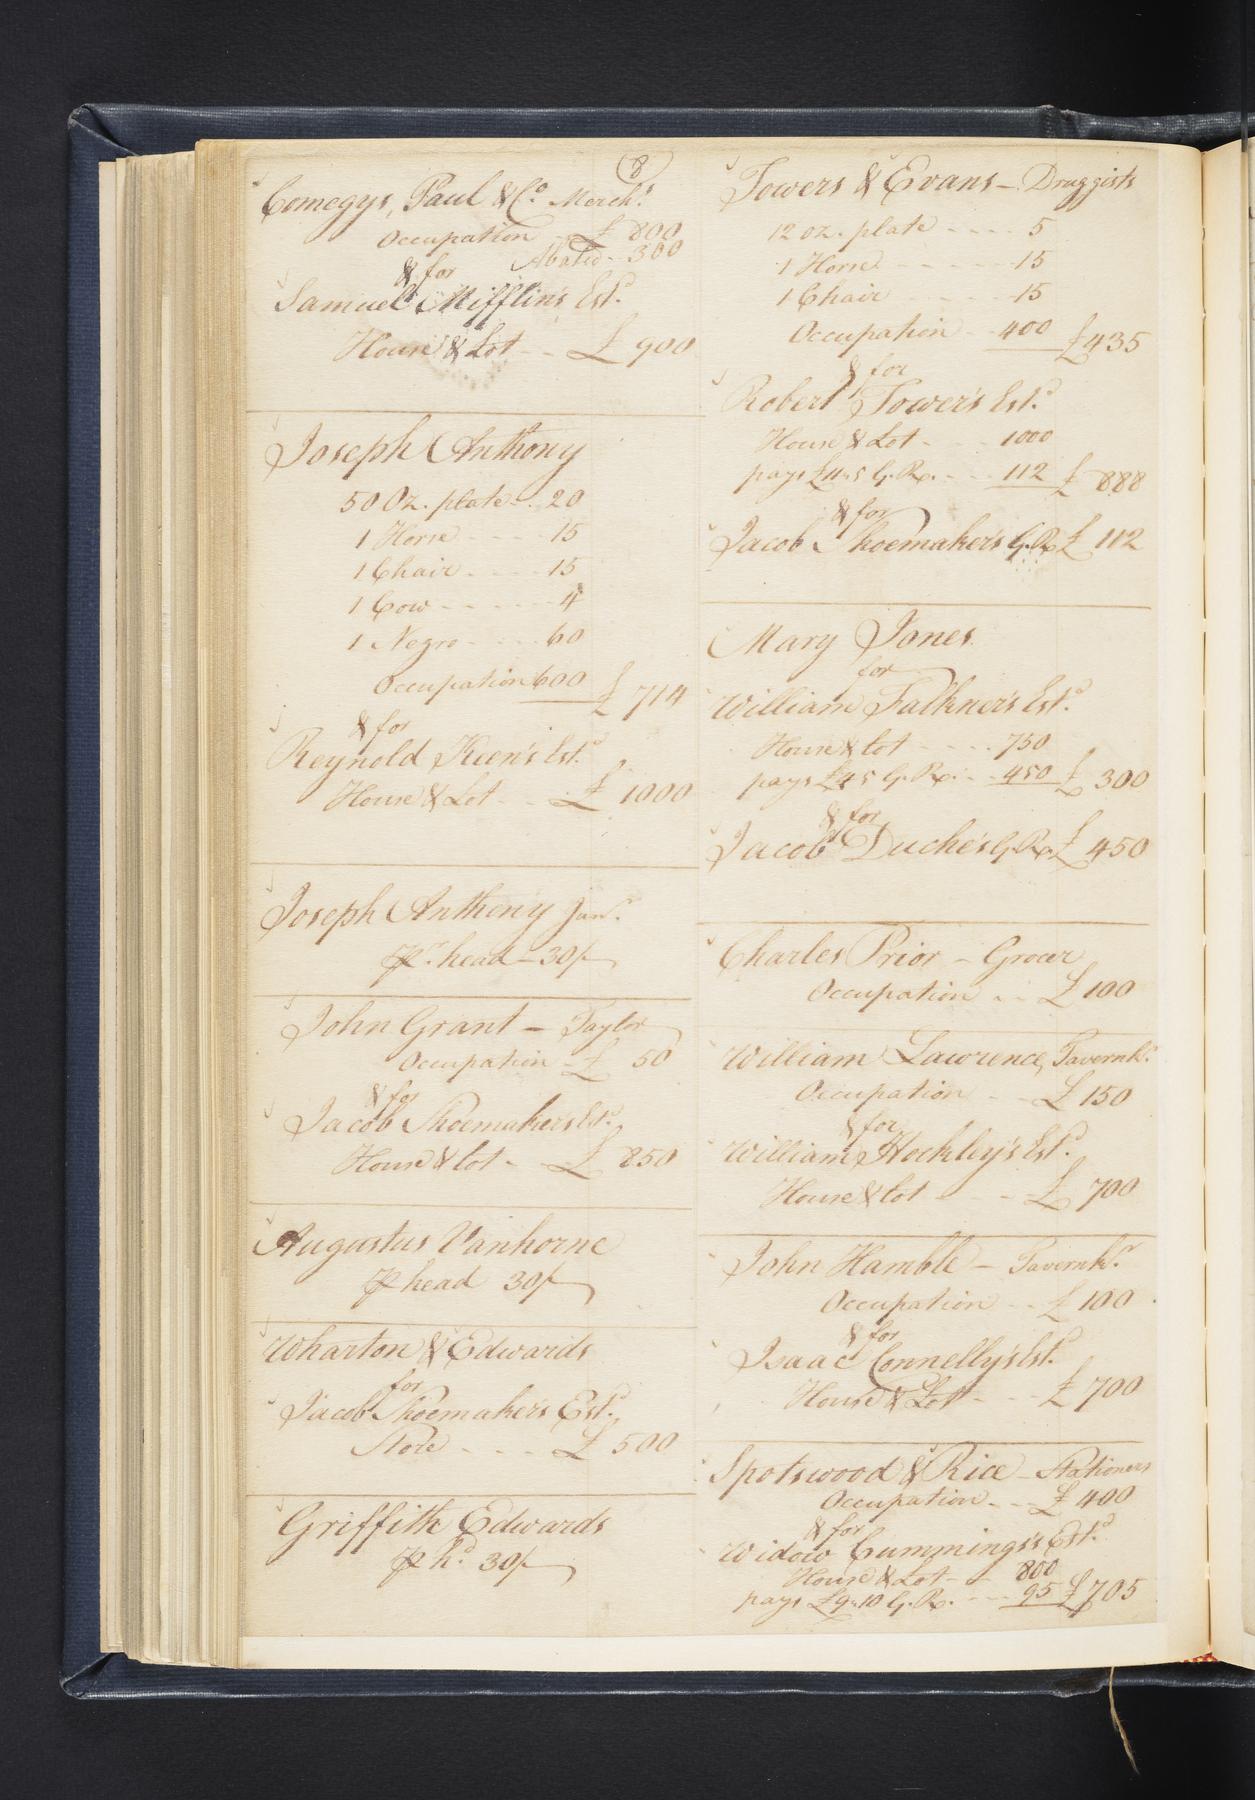 (8)
Comegys, Paul & Co. Mercht.
Occupation £ 800
Abated - 300
& for
Samuel Mifflin's Estd.
House & Lot - - £ 900
Joseph Anthony
50 Oz. plate - . 20
1 Horse - - - - 15
1 Chair - - - - 15
1 Cow - - - - - 4
1 Negro - - - - 60
Occupation 600 £ 714
& for
Reynold Keen's Estd.
House & Lot - - £ 1000
Joseph Anthony Junr.
pr. head - 30/-
John Grant - Taylor
Occupation - £ 50
& for
Jacob Shoemakers Estd.
House & Lot - £ 850
Augustus Vanhorne
p head 30/-
Wharton & Edwards
for
Jacob Shoemakers Estd.
Store - - - - £ 500
Griffith Edwards
p hd. 30/-
Towers & Evans - Druggists
12 oz. plate - - - - 5
1 Horse - - - - - 15
1 Chair - - - - - 15
Occupation - - 400 £ 435
& for
Robert Tower's Estd.
House & Lot - - - - 1000
pays £4..5 G. Rt. - - - 112 £ 888
& for
Jacob Shoemaker's G. Rt £ 112
Mary Jones
for
William Falkner's Estd.
House & lot - - - - 750
pays £45 G. Rt. - - 450 £ 300
& for
Jacob Duche's G. Rt. £ 450
Charles Prior - Grocer
Occupation - - £ 100
William Lawrence, Tavernkr.
Occupation - - £ 150
& for
William Hockley's Estd.
House & lot - - - £ 700
John Hamble - Tavernkr.
Occupation - - £ 100
& for
Isaac Connelly's Estd.
House & Lot - - - £ 700
Spotswood & Rice - Stationers
Occupation - - £ 400
& for
Widow Cummings's Estd.
House & Lot - - 800
pays £9..10 G. Rt. - - - 95 £ 705